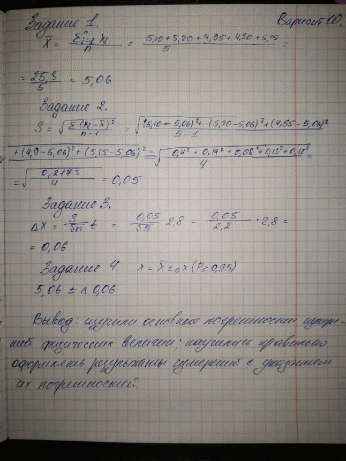 Задание 1. Вариант 00.
x̄ = Σⁿᵢ₌₁ xᵢ / n = 5,10+5,20+4,95+4,90+5,15 / 5 =
= 25,3 / 5 = 5,06
Задание 2.
S = √(Σ(xᵢ-x̄)² / n-1) = √((5,10-5,06)² + (5,20-5,06)² + (4,95-5,06)² / 5-1
+(4,9-5,06)² + (5,15-5,06)² =
= 0,05
Задание 3.
Δx = S/√n t = 0,05/√n 2,8 = 0,05/2,2 · 2,8 =
= 0,06
Задание 4. x = x̄ ± Δx (P=0,95)
5,06 ± 0,06
Вывод: изучили основное погрешности измере-
ний физических величин; научились правильно
оформлять результаты измерений с указанием
их погрешностей.